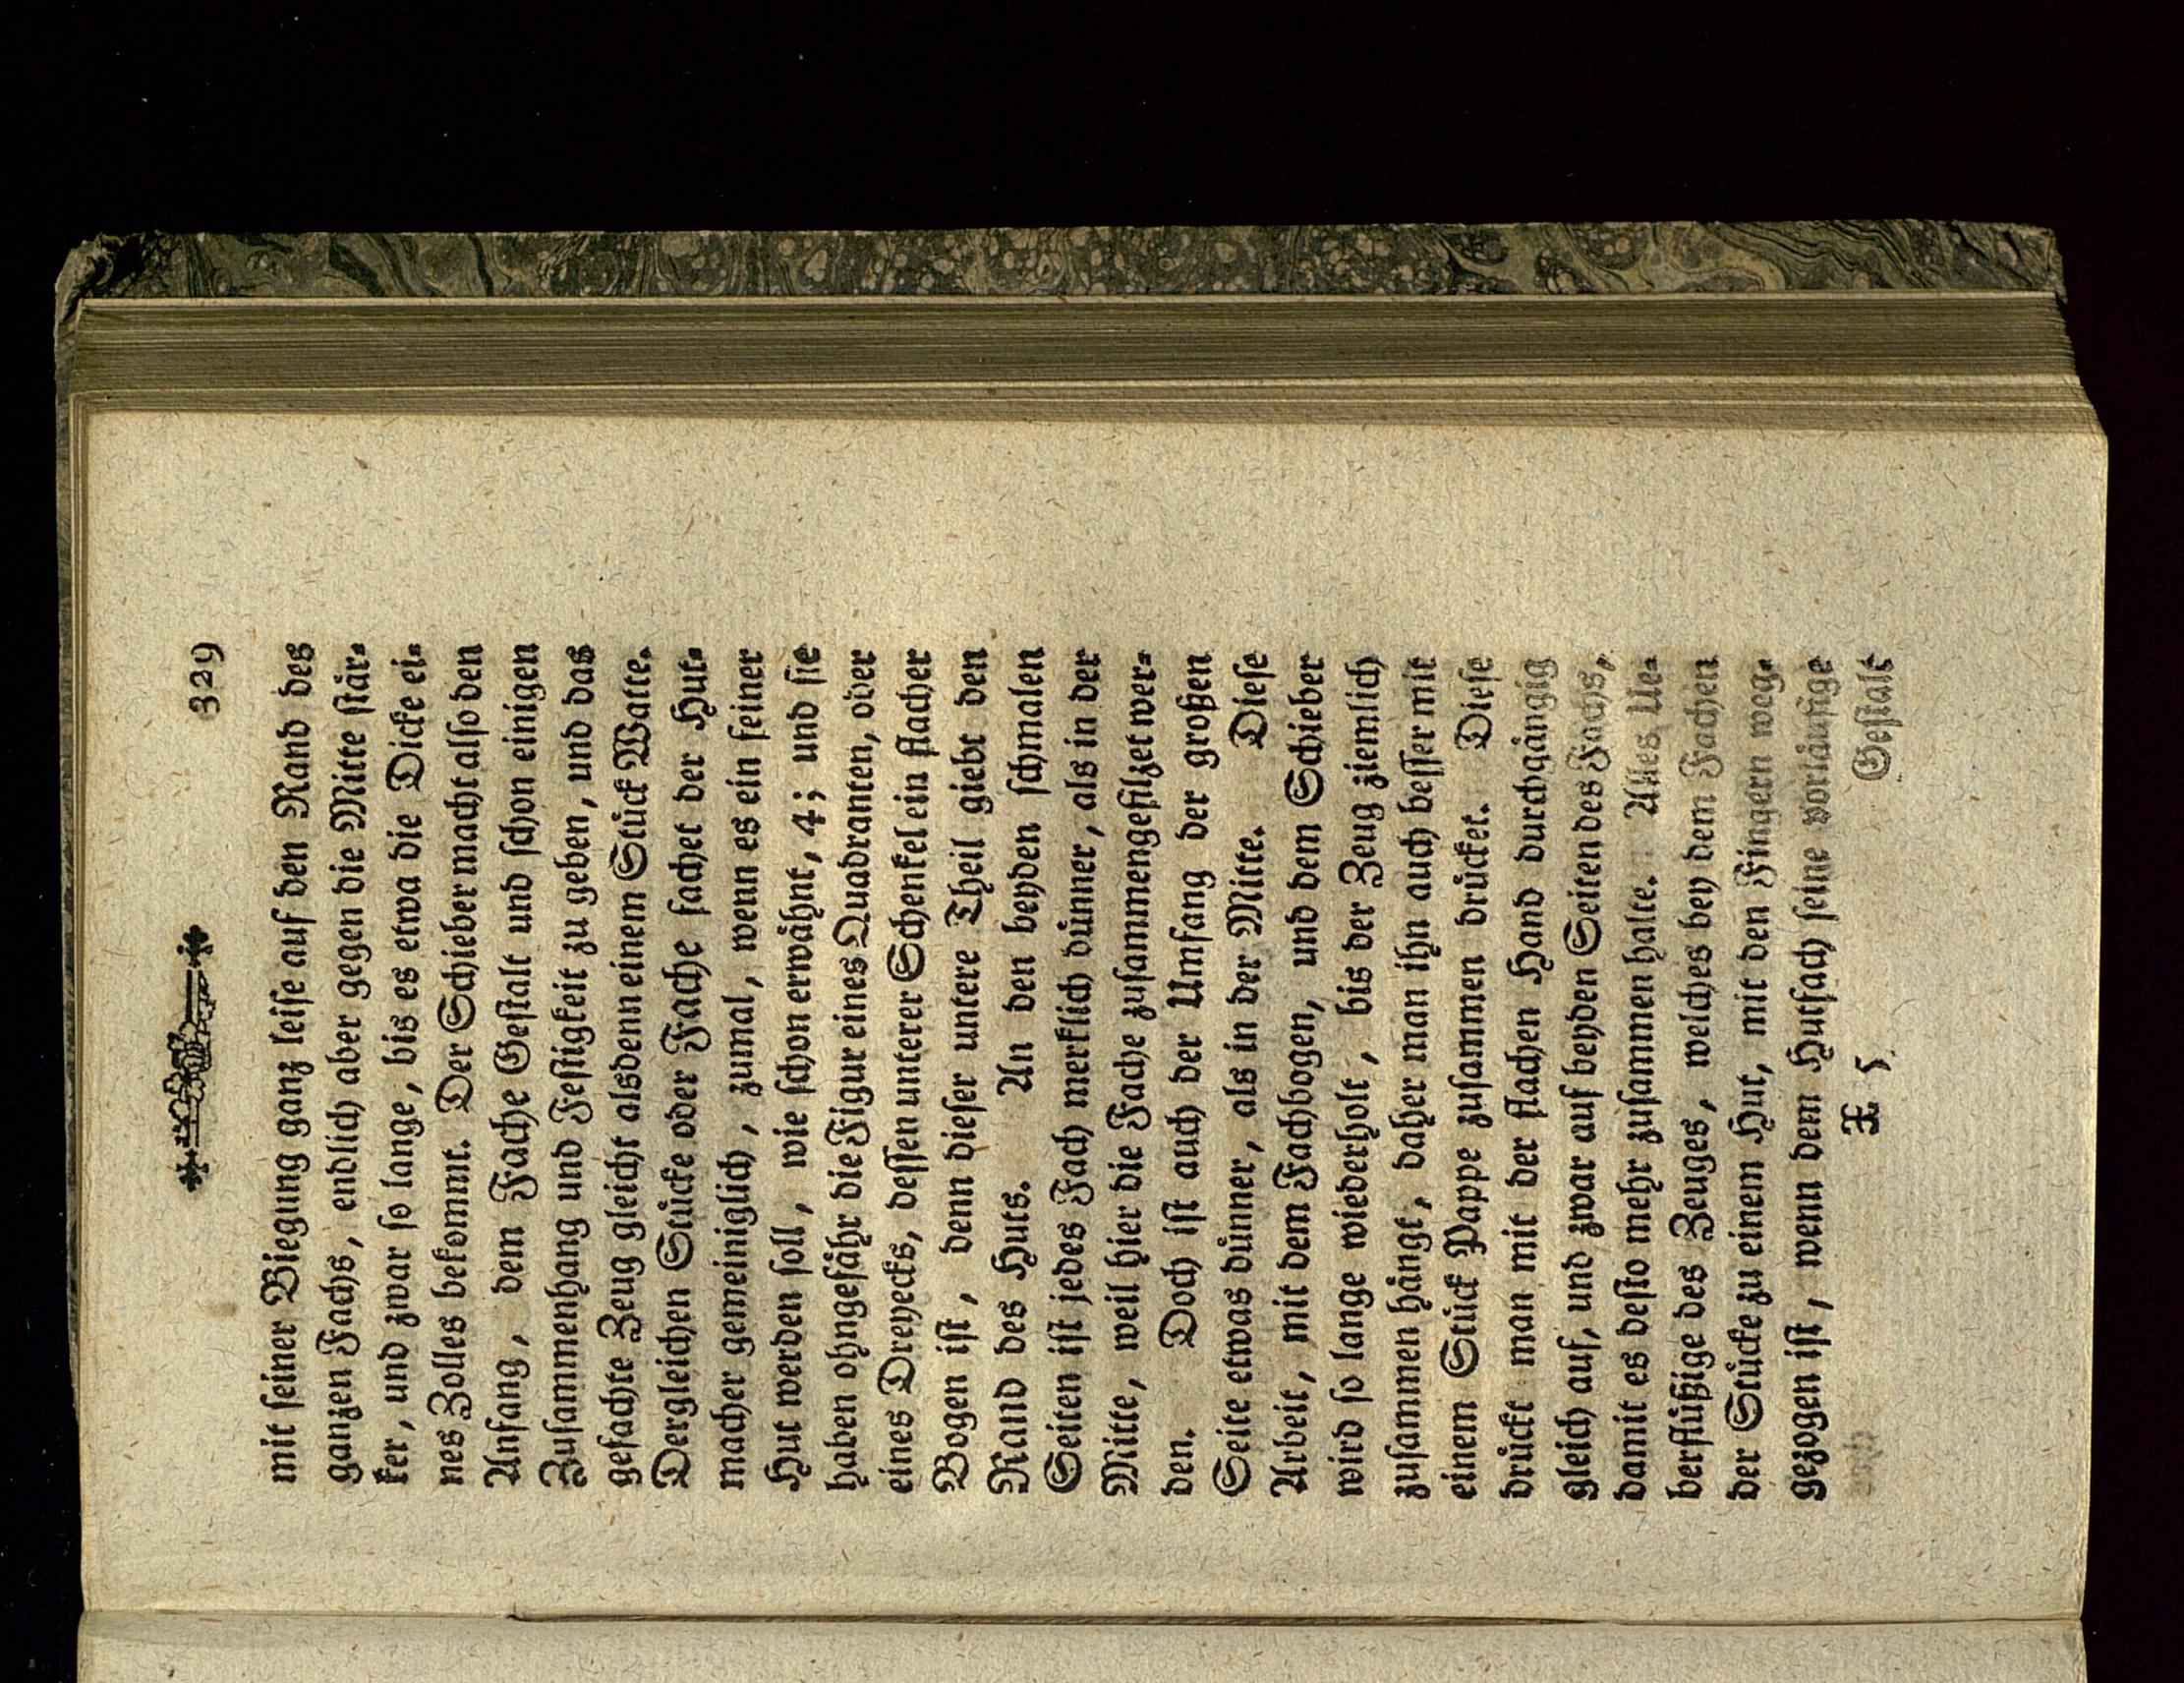 329
mit ſeiner Biegung ganz leiſe auf den Rand des
ganzen Fachs, endlich aber gegen die Mitte ſtär-
ker, und zwar ſo lange, bis es etwa die Dicke ei-
nes Zolles bekommt. Der Schieber macht alſo den
Anfang, dem Fache Geſtalt und ſchon einigen
Zuſammenhang und Feſtigkeit zu geben, und das
gefachte Zeug gleicht alsdenn einem Stück Watte.
Dergleichen Stücke oder Fache fachet der Hut-
macher gemeiniglich, zumal, wenn es ein feiner
Hut werden ſoll, wie ſchon erwähnt, 4; und ſie
haben ohngefähr die Figur eines Quadranten, oder
eines Dreyecks, deſſen unterer Schenkel ein flacher
Bogen iſt, denn dieſer untere Theil giebt den
Rand des Huts. An den beyden ſchmalen
Seiten iſt jedes Fach merklich dünner, als in der
Mitte, weil hier die Fache zuſammengefilzet wer-
den. Doch iſt auch der Umfang der großen
Seite etwas dünner, als in der Mitte. Dieſe
Arbeit, mit dem Fachbogen, und dem Schieber
wird ſo lange wiederholt, bis der Zeug ziemlich
zuſammen hängt, daher man ihn auch beſſer mit
einem Stück Pappe zuſammen drücket. Dieſe
drückt man mit der flachen Hand durchgängig
gleich auf, und zwar auf beyden Seiten des Fachs,
damit es deſto mehr zuſammen halte. Alles Ue-
berflüßige des Zeuges, welches bey dem Fachen
der Stücke zu einem Hut, mit den Fingern weg-
gezogen iſt, wenn dem Hutfach ſeine vorläufige
X 5 Geſtalt